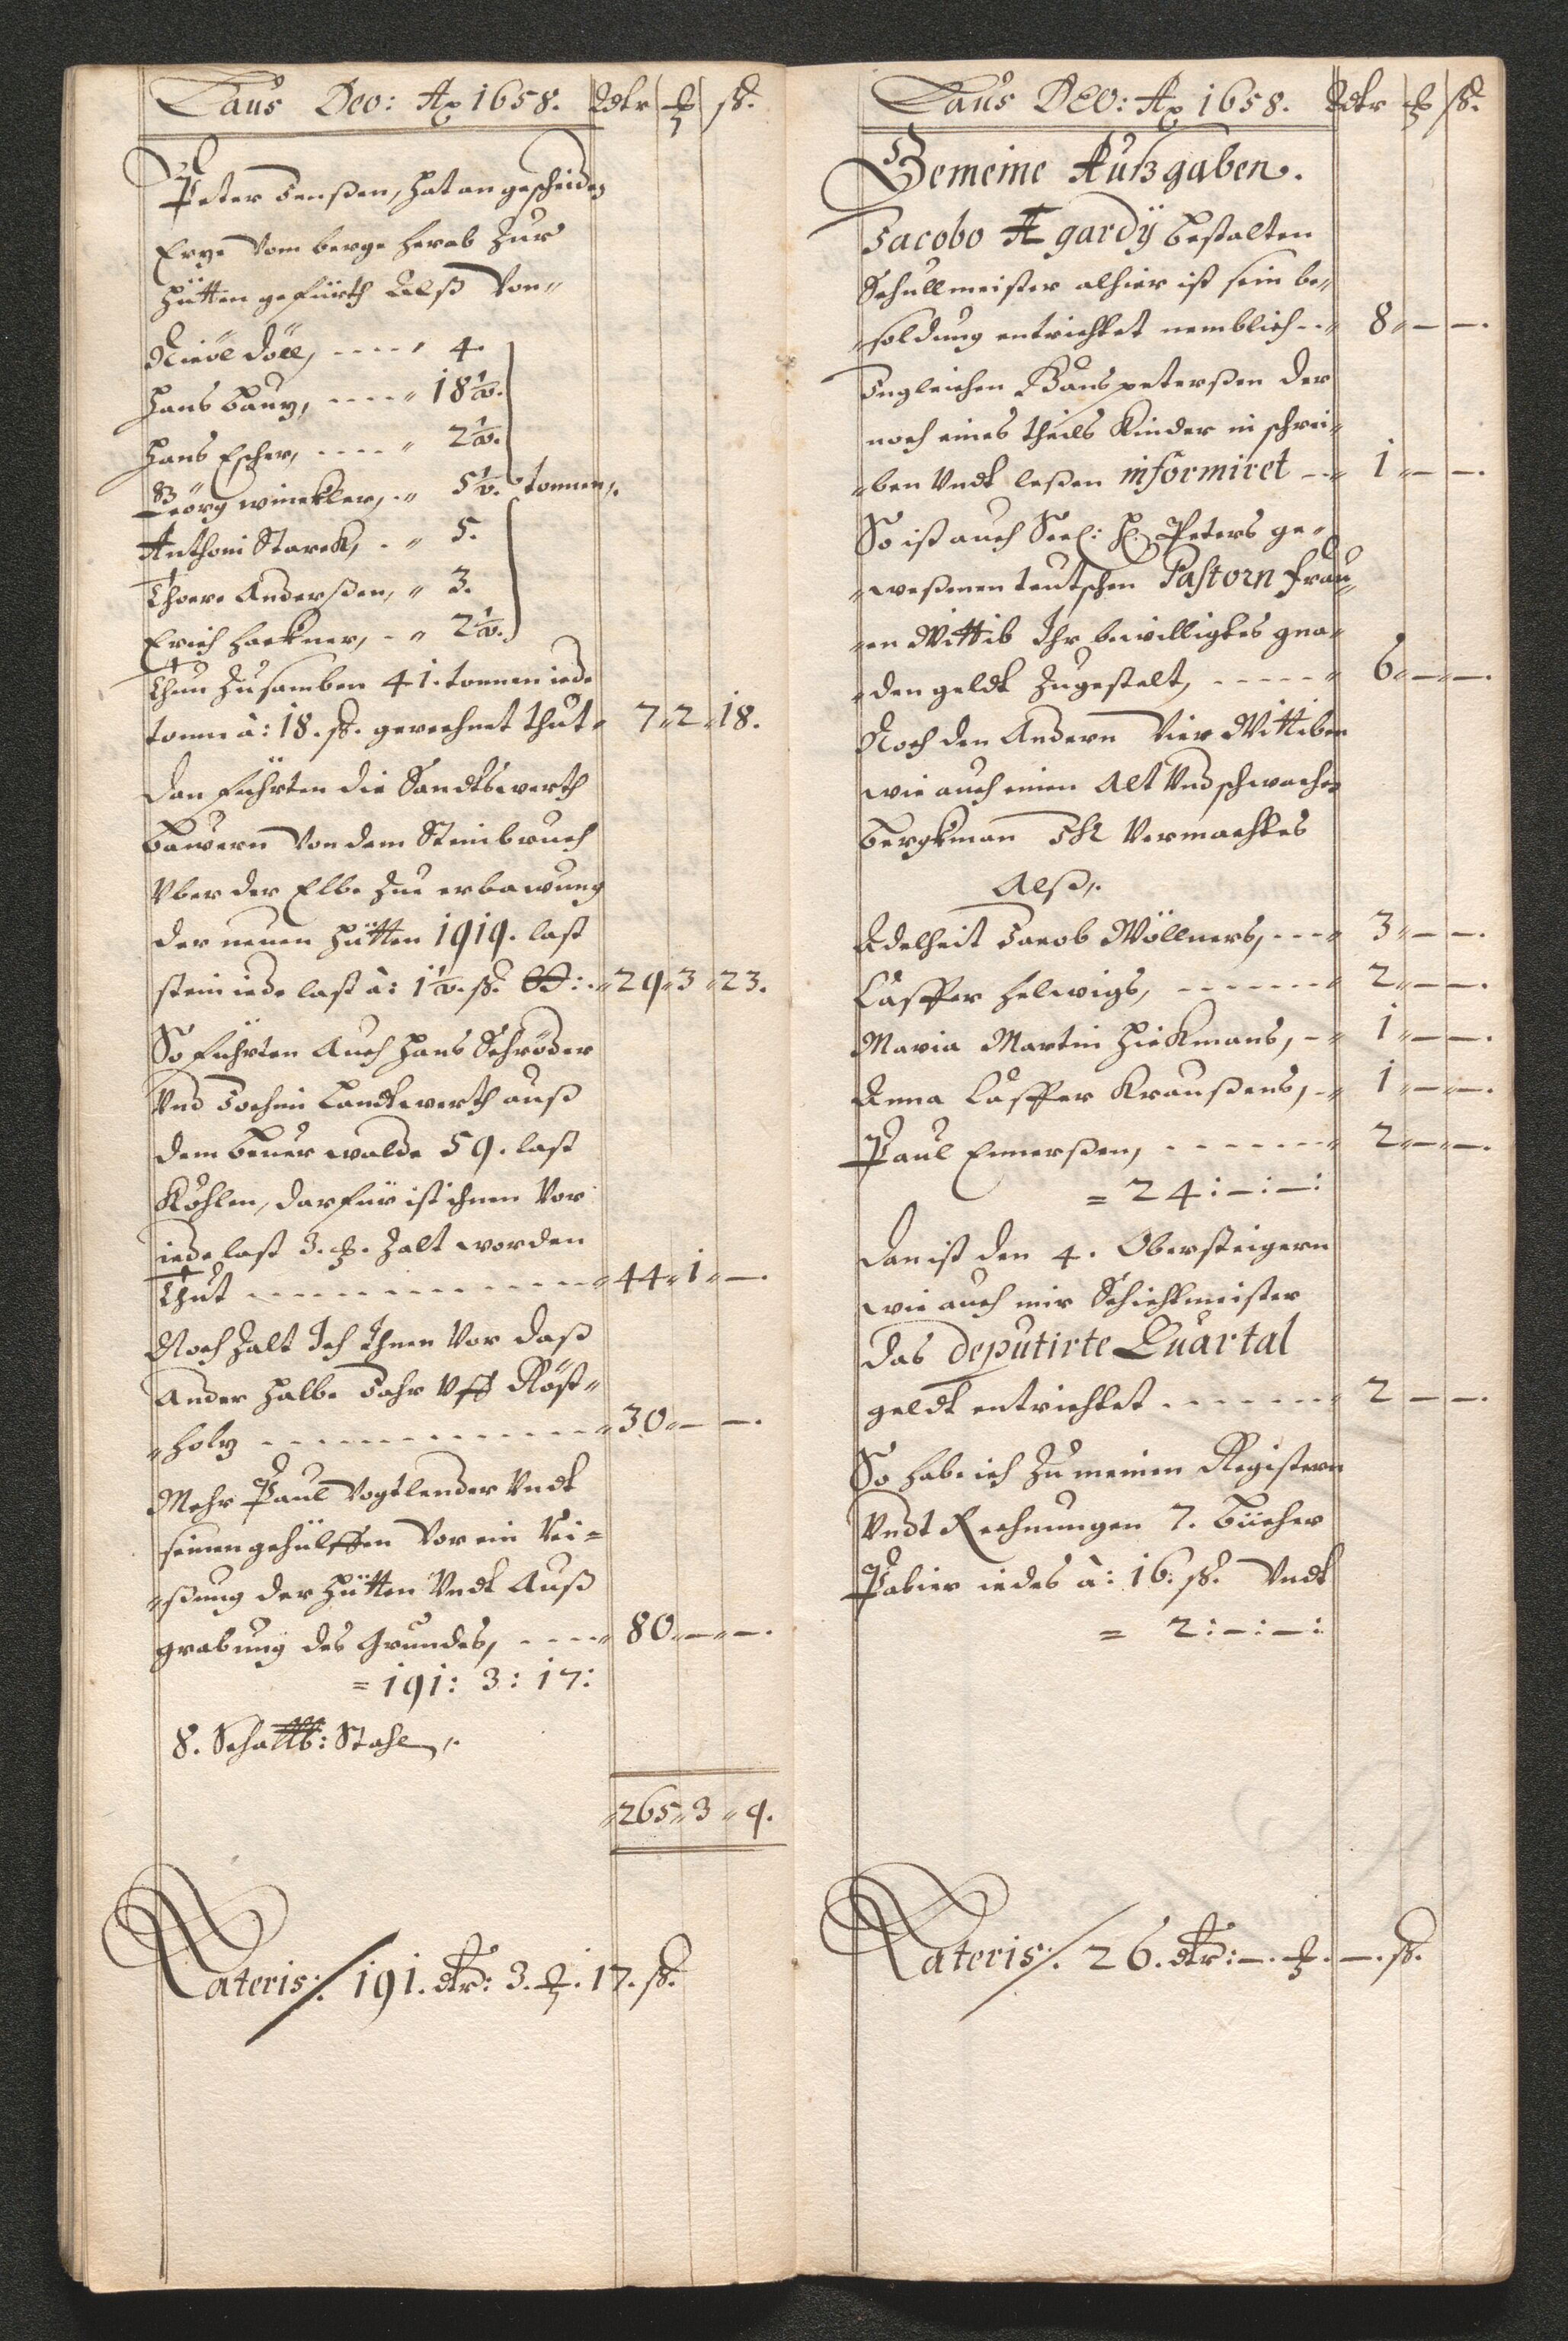 Laus Deo: Ao 1658. Rdtr ß.
Peter Jenßen, hat an gescheiden
Ertze Vom berge herab Zur
Hütten geführth Alß Von
Nicöl Döll, 4.
Hans Bautz, 18½.
Hans Escher, 2½.
Geörg winckler, 5½. tonnen,.
Anthoni Starck, 5.
Thore Anderßen, 3.
Erich Hackner, 2½.
Thun Zusamben 41. tonnen iede
tonne à: 18. ß. gerechnet thut 7 2 18.
Dan führten die Sandtswerth
Bauern Von dem Steinbruch
Vber der Elbe Zue erbawung
der neuen Hütten 1919. last
stein iede last à: 1½. ß. 29 3 23.
So führten Auch Hans Schröder
Vnd Jochim Landtwerth auß
dem Beuer walde 59. last
Kohlen, darfür ist ihnen Vor
iede last 3. Zalt worden
Thut 44 1 —.
Noch Zalt Ich Ihnen Vor daß
Ander halbe Jahr Vff Röst-
holtz 30 — —.
Mehr Paul Vogtlender Vndt
seinen gehülffen Vor ein Rei=
ßung der Hütten Vndt Auß
grabung des Grundes, 80 — —.
= 191: 3: 17:
8. Stahl,.
265 3 9.
Lateris:/. 191. dtr: 3. 17. ß.
Laus DEO: Ao 1658. Rdtr ß.
Gemeine Außgaben.
Jacobo Agardÿ bestalten
Schullmeister alhier ist sein be-
soldung entrichtet nemblich 8 — —.
Ingleichen Hans peterßen der
noch eines theils Kinder in schrei-
ben Vndt leßen informiret 1 — —.
So ist auch Seel: H: Peters ge-
weßenen teutschen Pastorn frau-
en Wittib Ihr bewilligtes gna-
den geldt Zugestelt, 6 — —.
Noch den Andern Vier Wittiben
wie auch einen Alt Vnd schwachen
Bergkman Vermachtes
Alß,.
Adelheit Jacob Möllners, 3 — —.
Casper Helwigs, 2 — —.
Maria Martin Hickmans, 1 — —.
Anna Casper Kraußens, 1 — —.
Paul Emmerßen, 2 — —.
= 24: —: —:
Dan ist den 4. Obersteigern
wie auch mir Schichtmeister
Das deputirte Quartal
geldt entrichtet 2 — —.
So habe ich Zu meinen Registern
Vndt Rechnungen 7. Bücher
Pabier iedes à: 16. ß. Vndt
= 2: —: —:
Lateris:/. 26. dtr: —. —. ß.